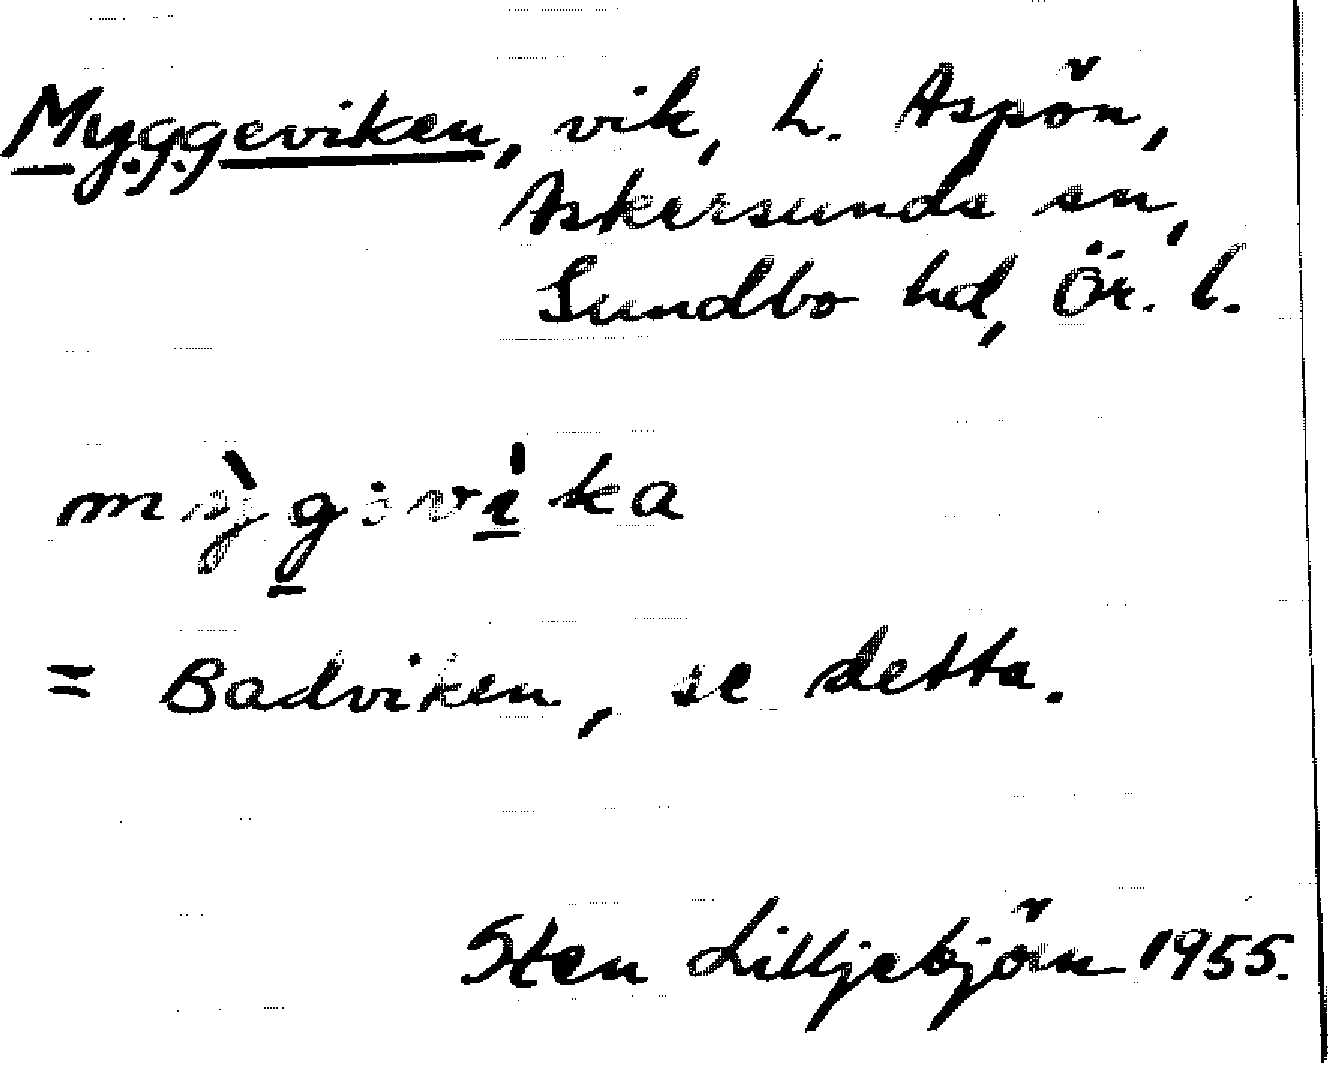 Myggeviken, vik, L. Aspön,
Askersunds sn,
Sundbo hd, Ör. l.
= Badviken, se detta.
Sten Lilljebjörn 1955.